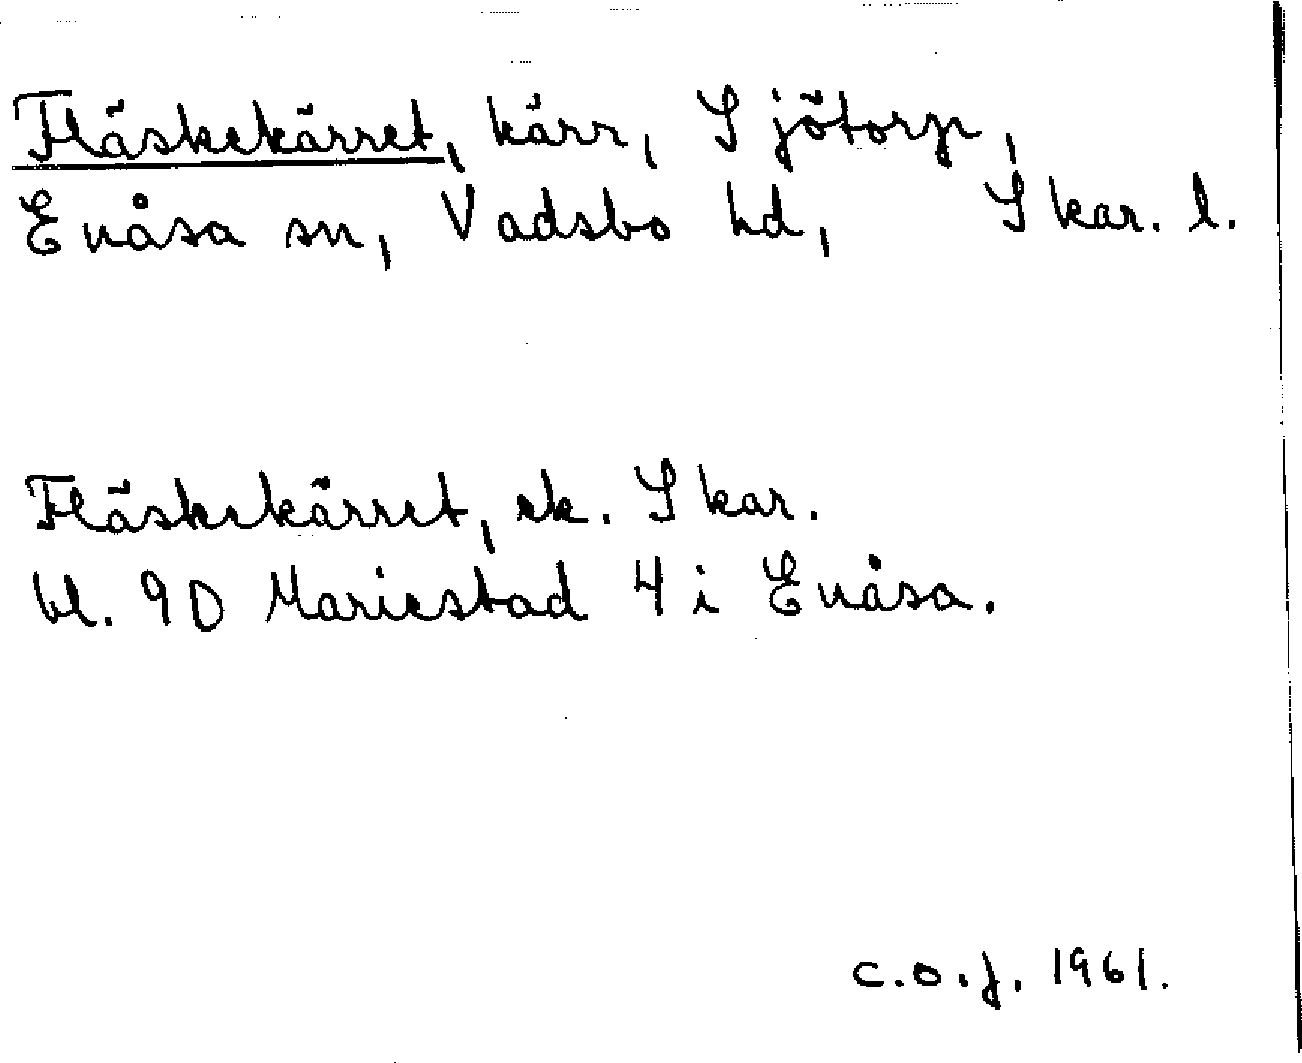 Fläskekärret, kärr, Sjötorp,
Enåsa sn, Vadsbo hd, Skar. l.
Fläskekärret, ek. Skar.
bl. 9D Mariestad 4 i Enåsa.
c.o.j. 1961.